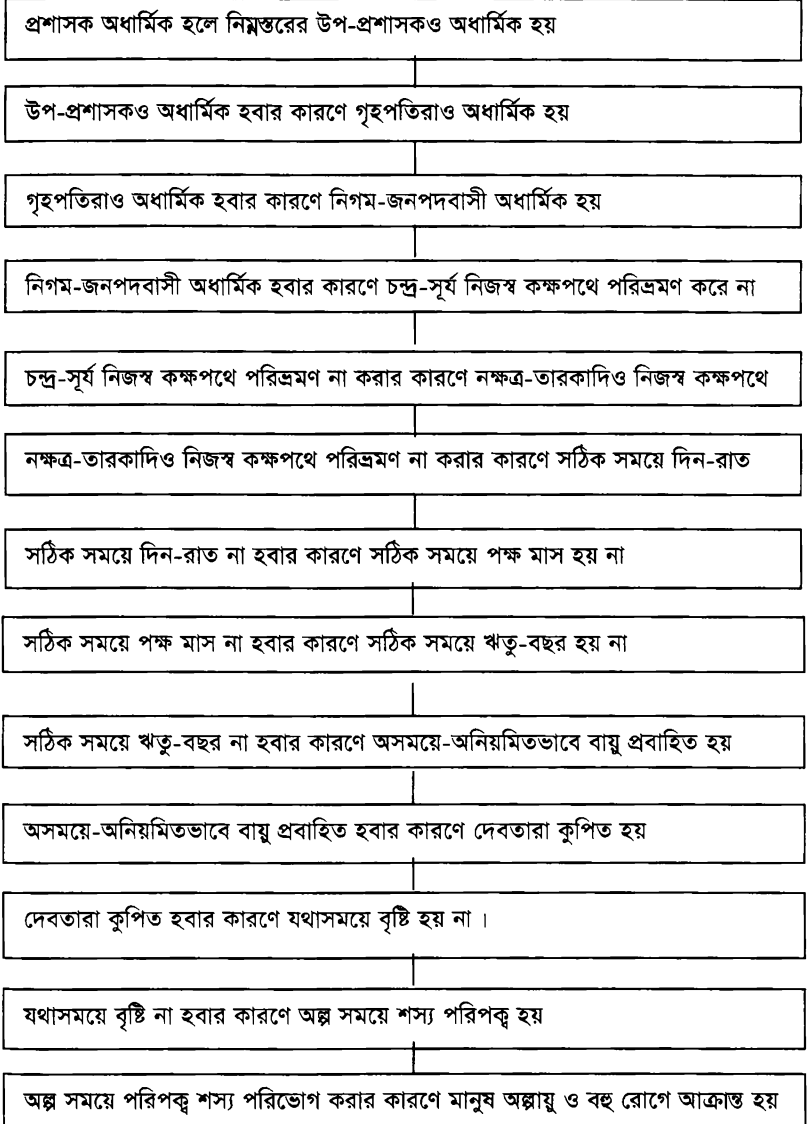 প্রশাসক অধার্মিক হলে নিম্নস্তরের উপ-প্রশাসকও অধার্মিক হয়
উপ-প্রশাসকও অধার্মিক হবার কারণে গৃহপতিরাও অধার্মিক হয়
গৃহপতিরাও অধার্মিক হবার কারণে নিগম-জনপদবাসী অধার্মিক হয়
নিগম-জনপদবাসী অধার্মিক হবার কারণে চন্দ্র-সূর্য নিজস্ব কক্ষপথে পরিভ্রমণ করে না
চন্দ্র-সূর্য নিজস্ব কক্ষপথে পরিভ্রমণ না করার কারণে নক্ষত্র-তারকাদিও নিজস্ব কক্ষপথে
নক্ষত্র-তারকাদিও নিজস্ব কক্ষপথে পরিভ্রমণ না করার কারণে সঠিক সময়ে দিন-রাত
সঠিক সময়ে দিন-রাত না হবার কারণে সঠিক সময়ে পক্ষ মাস হয় না
সঠিক সময়ে পক্ষ মাস না হবার কারণে সঠিক সময়ে ঋতু-বছর হয় না
সঠিক সময়ে ঋতু-বছর না হবার কারণে অসময়ে-অনিয়মিতভাবে বায়ু প্রবাহিত হয়
অসময়ে-অনিয়মিতভাবে বায়ু প্রবাহিত হবার কারণে দেবতারা কুপিত হয়
দেবতারা কুপিত হবার কারণে যথাসময়ে বৃষ্টি হয় না ।
যথাসময়ে বৃষ্টি না হবার কারণে অল্প সময়ে শস্য পরিপক্ব হয়
অল্প সময়ে পরিপক্ব শস্য পরিভোগ করার কারণে মানুষ অল্পায়ু ও বহু রোগে আক্রান্ত হয়